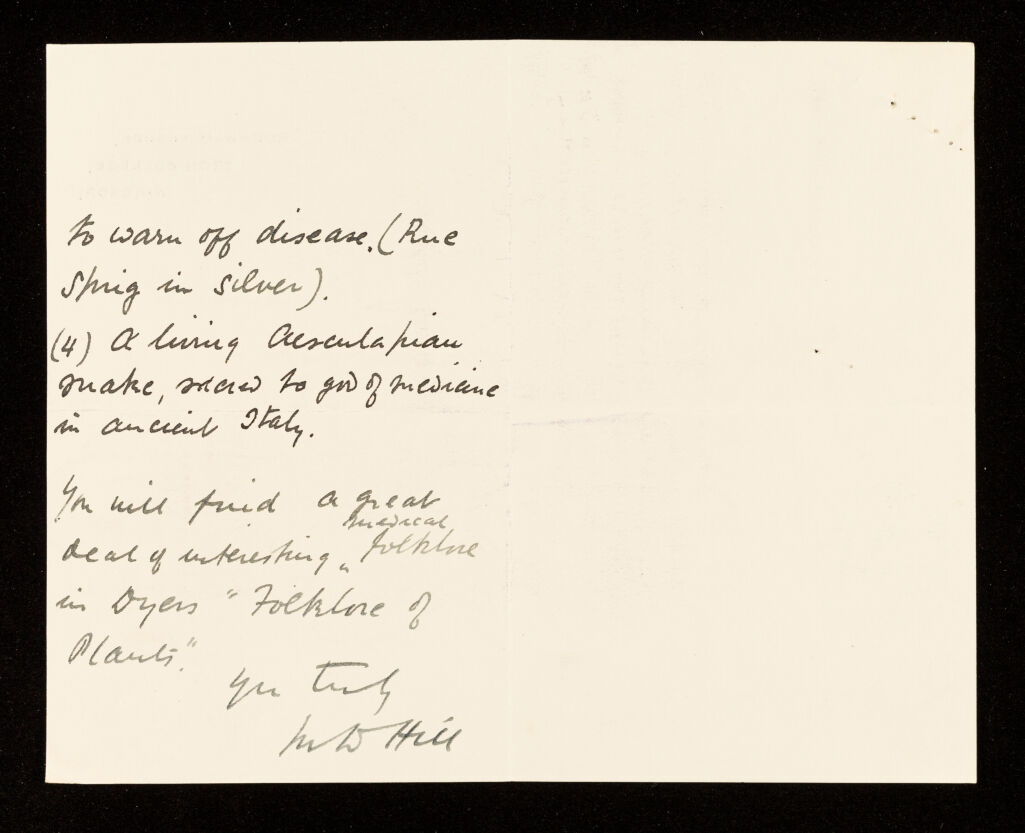 to warn off disease. (Rue
Sprig in silver).
(4) A living Aesculapian
snake, sacred to god of medicine
in ancient Italy.
You will find a great
medical
deal of interesting „ folklore
in Dyers "Folklore of
Plants".
Yrs truly
M W Hill